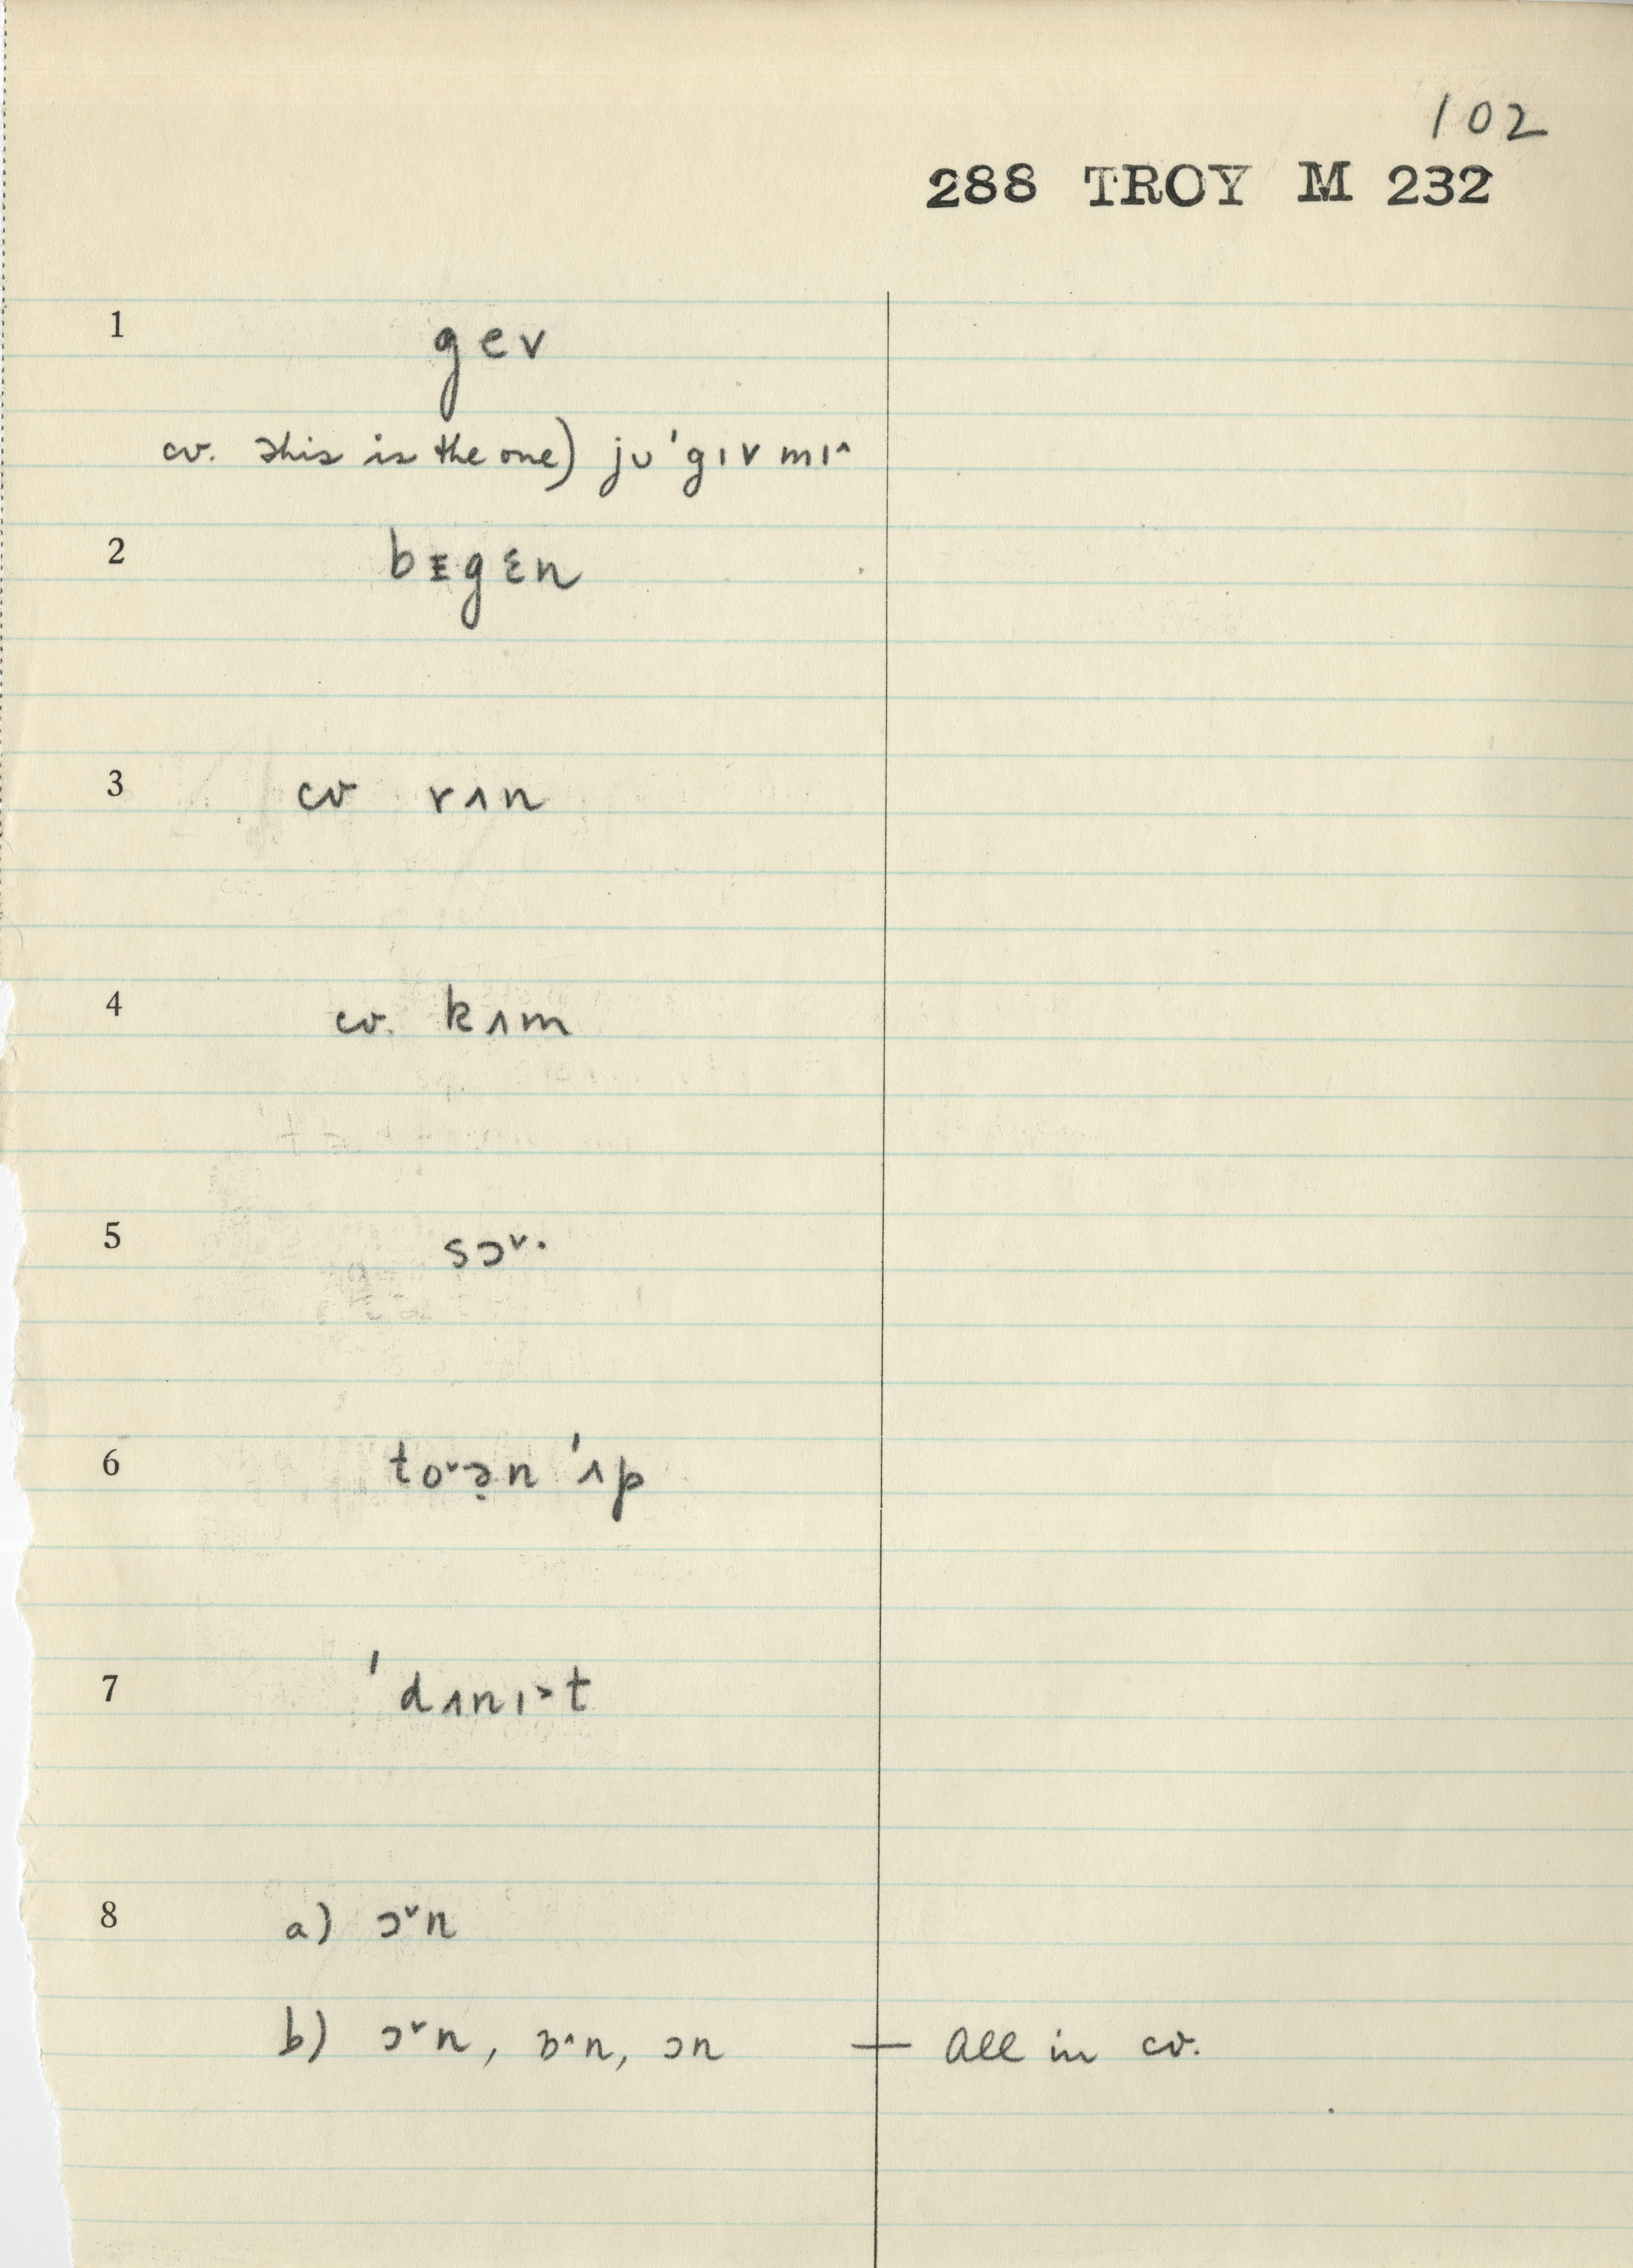 102
288 TROY M 232
1 gev
cv. This is the one) jᴜ 'gɪv mɪ^
2 bᵻgɛn
3 cv rʌn
4 cv. kʌm
5 sɔ˅·
6 to˅ə̣n 'ʌp
7 'dʌnɪ˃t
8 a) ɔ˅n
b) ɔ˅n, ɒ^n, ɔn — All in cv.